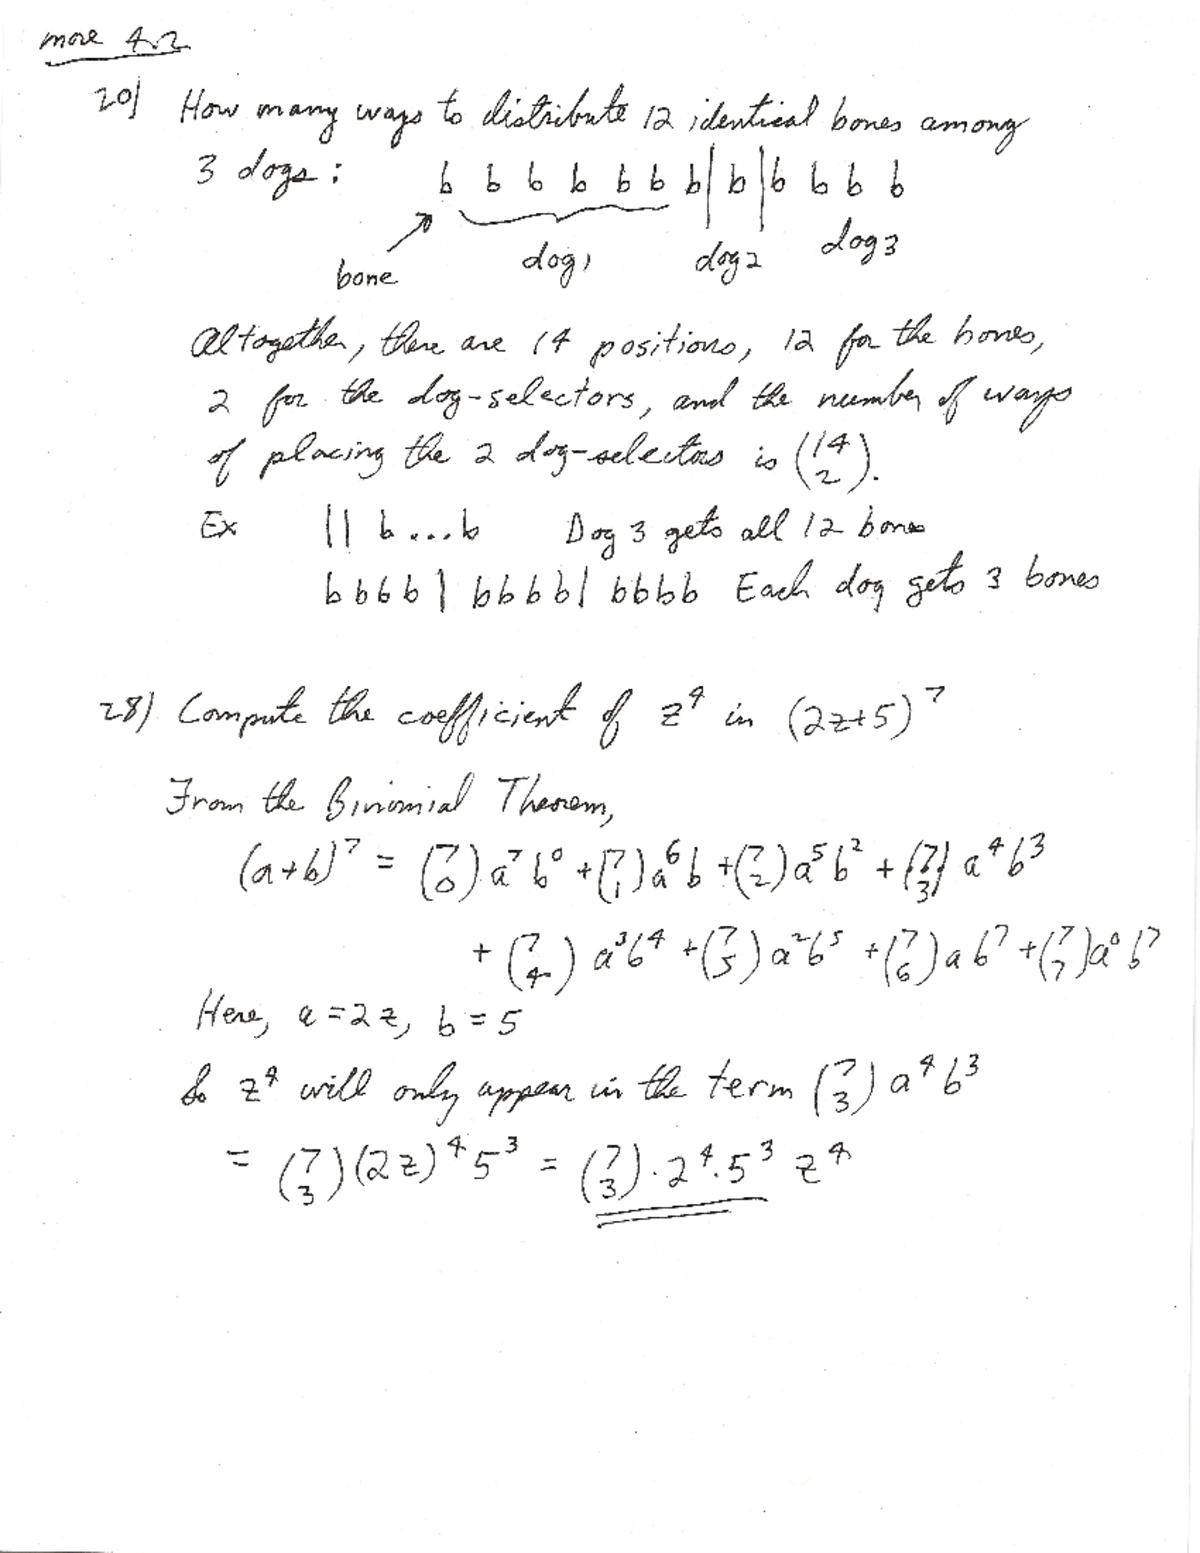 more 4.2
20) How many ways to distribute 12 identical bones among
3 dogs: b b b b b b b | b | b b b b
bone dog 1 dog 2 dog 3
Altogether, there are 14 positions, 12 for the bones,
2 for the dog-selectors, and the number of ways
of placing the 2 dog-selectors is (14 2).
Ex || b...b Dog 3 gets all 12 bones
bbbb | bbbb | bbbb Each dog gets 3 bones
28) Compute the coefficient of z⁴ in (2z+5)⁷
From the Binomial Theorem,
(a+b)⁷ = (7 0) a⁷ b⁰ + (7 1) a⁶ b + (7 2) a⁵ b² + (7 3) a⁴ b³
+ (7 4) a³ b⁴ + (7 5) a² b⁵ + (7 6) a b⁷ + (7 7) a⁰ b⁷
Here, a = 2z, b = 5
So z⁴ will only appear in the term (7 3) a⁴ b³
= (7 3) (2z)⁴ 5³ = (7 3) · 2⁴ · 5³ z⁴